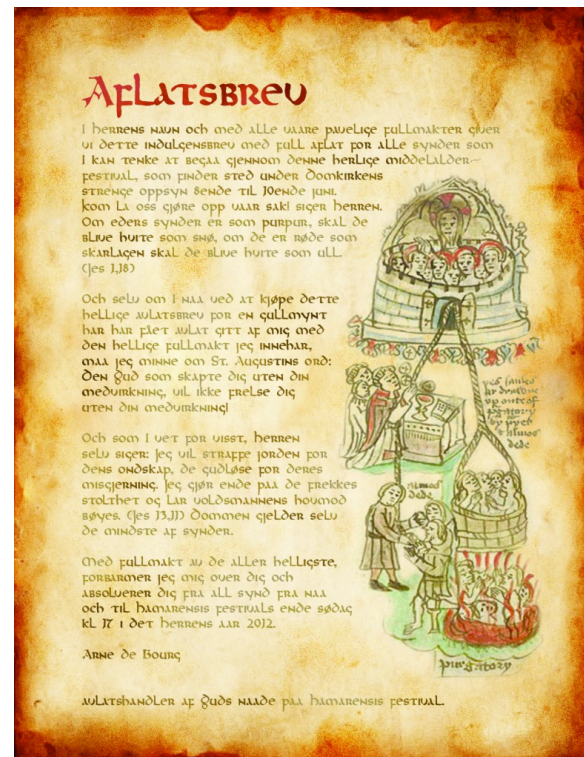 Aflatsbrev
I herrens navn och med alle vaare pavelige fullmakter giver
vi dette indulgensbrev med full aflat for alle synder som
I kan tenke at begaa gjennom denne herlige middelalder-
festival, som finder sted under Domkirkens
strenge oppsyn 8ende til 10ende juni.
Kom la oss gjøre opp vaar sak! siger herren.
Om eders synder er som purpur, skal de
blive hvite som snø, om de er røde som
skarlagen skal de blive hvite som ull.
(Jes 1,18)
Och selv om I naa ved at kjøpe dette
hellige avlatsbrev for en gullmynt
har har fået avlat gitt af mig med
den hellige fullmakt jeg innehar,
maa jeg minne om St. Augustins ord:
Den Gud som skapte dig uten din
medvirkning, vil ikke frelse dig
uten din medvirkning!
Och som I vet for visst, herren
selv siger: Jeg vil straffe jorden for
dens ondskap, de gudløse for deres
misgjerning. Jeg gjør ende paa de frekkes
stolthet og lar voldsmannens hovmod
bøyes. (Jes 13,11) Dommen gjelder selv
de mindste af synder.
Med fullmakt av de aller helligste,
forbarmer jeg mig over dig och
absolverer dig fra all synd fra naa
och til hamarensis festivals ende sødag
kl 17 i det herrens aar 2012.
Arne de Bourg
avlatshandler af Guds naade paa hamarensis festival.
dede
purgatory